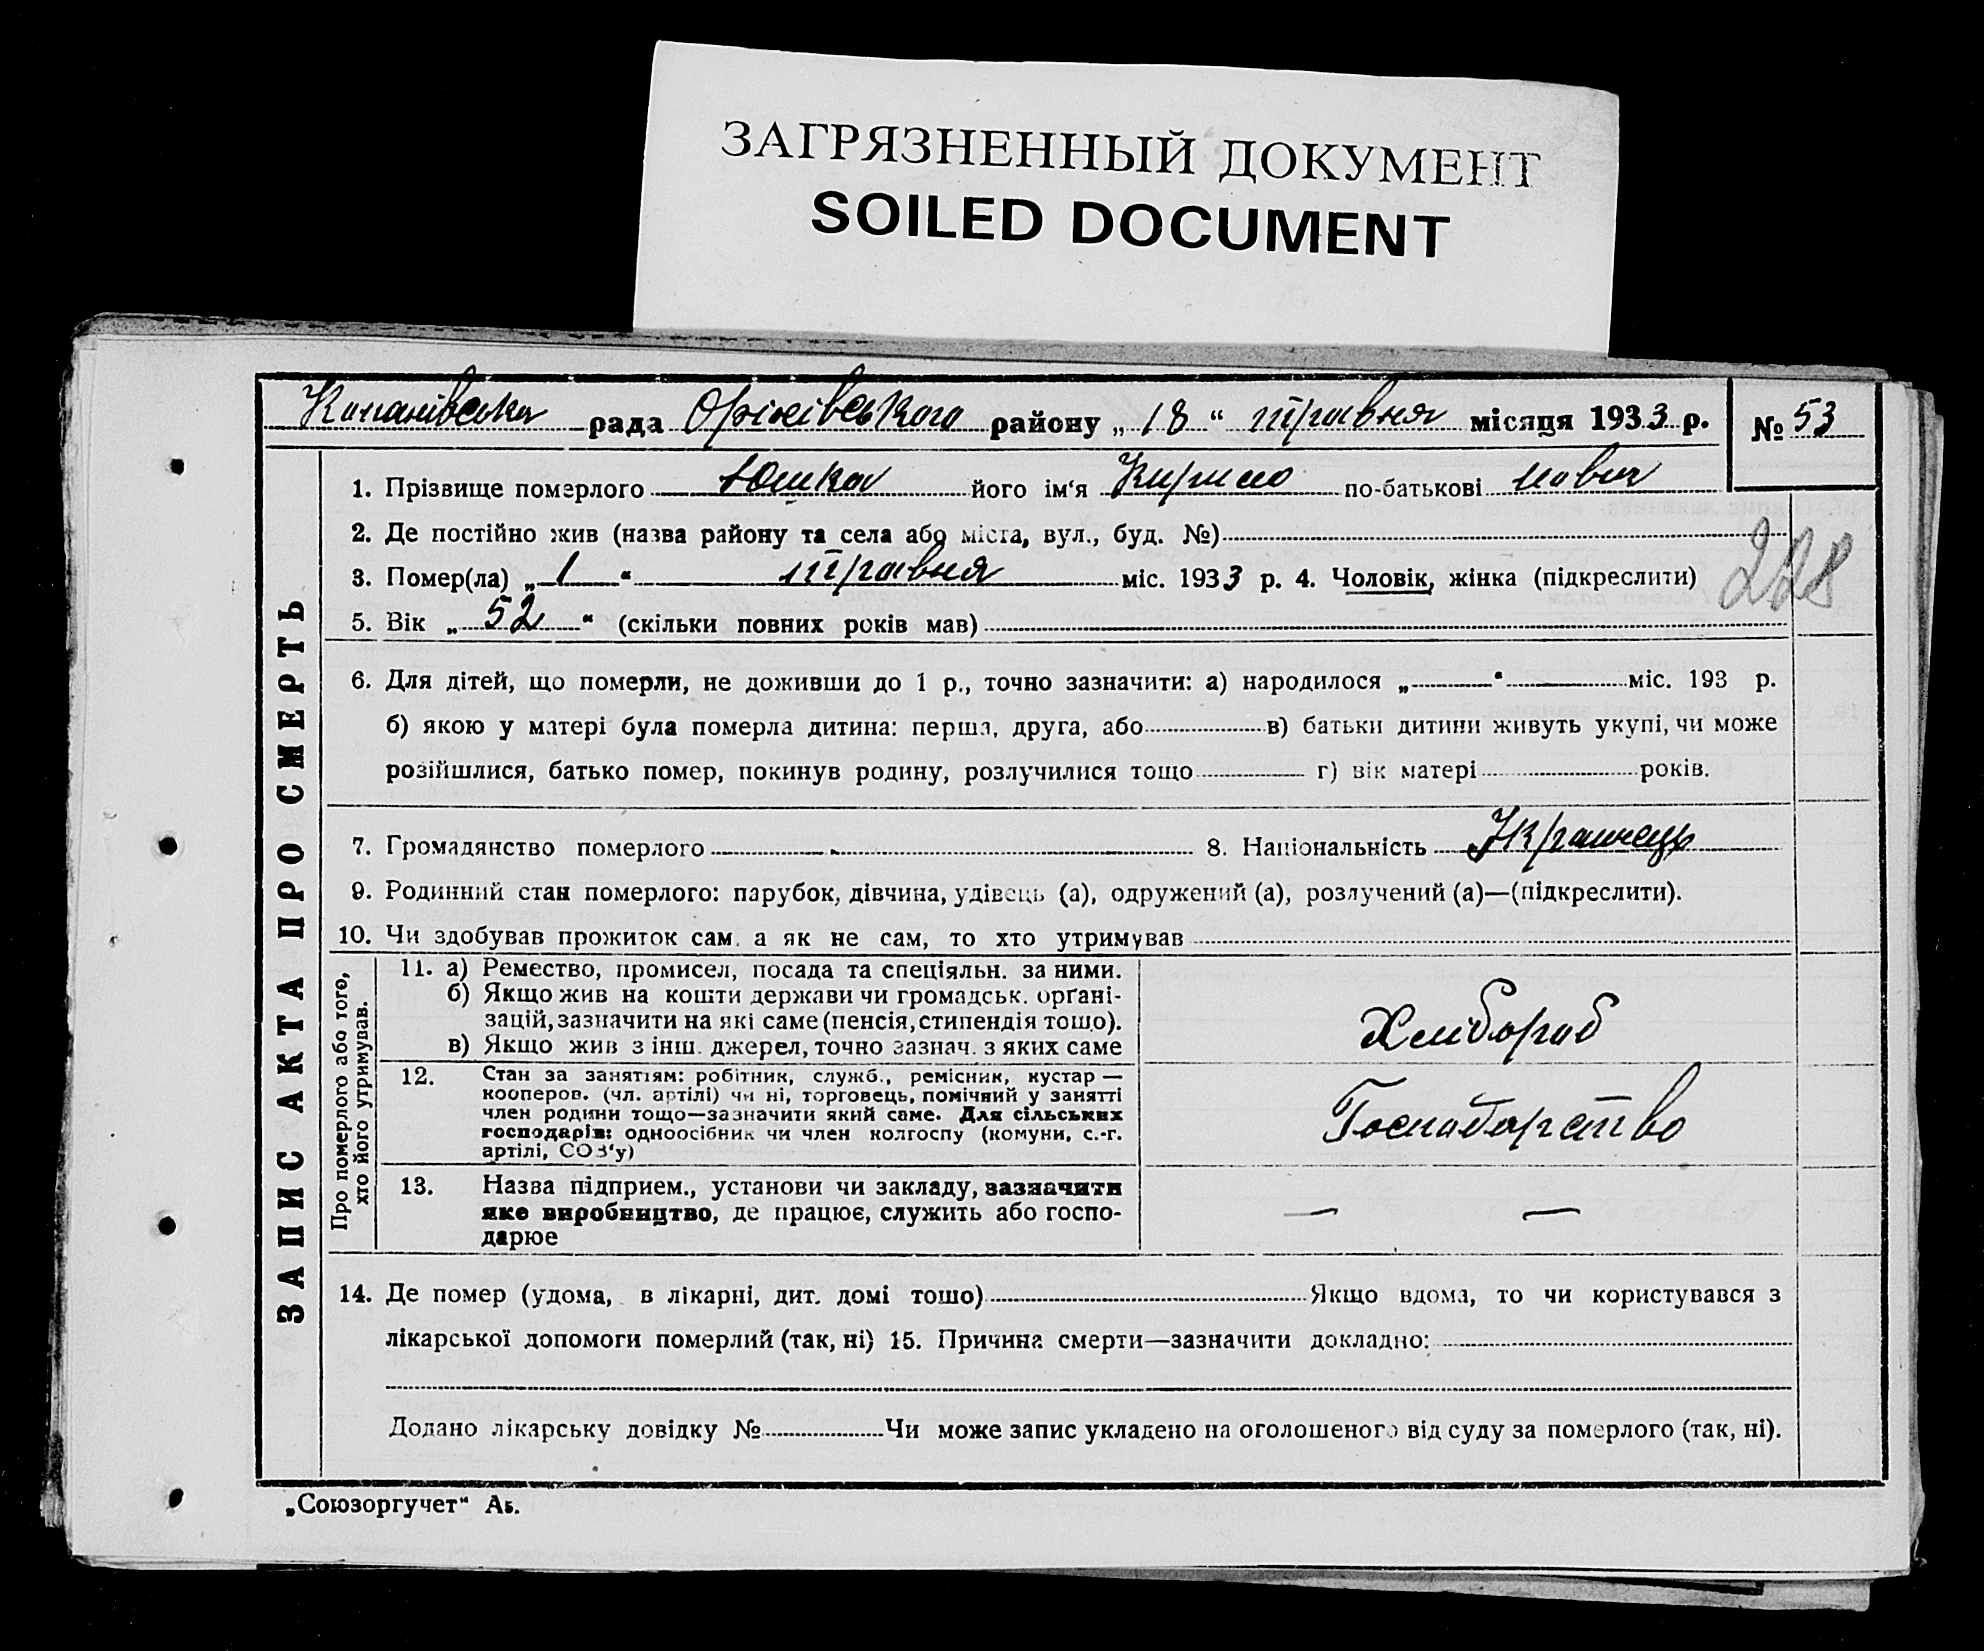 ЗАГРЯЗНЕННЫЙ ДОКУМЕНТ
SOILED DOCUMENT
Копанівська рада Оріхівського району „18“ травня місяця 1933 р. № 53
ЗАПИС АКТА ПРО СМЕРТЬ
1. Прізвище померлого Юшка його ім‘я Кирило по-батькові
2. Де постійно жив (назва району та села або міста, вул., буд. №)
228
3. Помер(ла) „1“ травня міс. 1933 р. 4. Чоловік, жінка (підкреслити)
5. Вік „52“ (скільки повних років мав)
6. Для дітей, що померли, не доживши до 1 р., точно зазначити: а) народилося „ “ міс. 193 р.
б) якою у матері була померла дитина: перша, друга, або в) батьки дитини живуть укупі, чи може
розійшлися, батько помер, покинув родину, розлучилися тощо г) вік матері років.
7. Громадянство померлого 8. Національність Українець
9. Родинний стан померлого: парубок, дівчина, удівець (а), одружений (а), розлучений (а)—(підкреслити).
10. Чи здобував прожиток сам, а як не сам, то хто утримував
Про померлого або того,
хто його утримував.
11. а) Ремество, промисел, посада та спеціяльн. за ними.
б) Якщо жив на кошти держави чи громадськ. орґані-
зацій, зазначити на які саме (пенсія, стипендія тощо).
в) Якщо жив з інш. джерел, точно зазнач. з яких саме
Хлібороб
12. Стан за заняттям: робітник, служб., ремісник, кустар —
кооперов. (чл. артілі) чи ні, торговець, помічний у занятті
член родини тощо—зазначити який саме. Для сільських
господарів: одноосібник чи член колгоспу (комуни, с.-г.
артілі, СОЗ‘у)
Господарство
13. Назва підприєм., установи чи закладу, зазначити
яке виробництво, де працює, служить або госпо-
дарює
— —
14. Де помер (удома, в лікарні, дит. домі тощо) Якщо вдома, то чи користувався з
лікарської допомоги померлий (так, ні) 15. Причина смерти—зазначити докладно:
Додано лікарську довідку № Чи може запис укладено на оголошеного від суду за померлого (так, ні).
„Союзоргучет“ Аб.